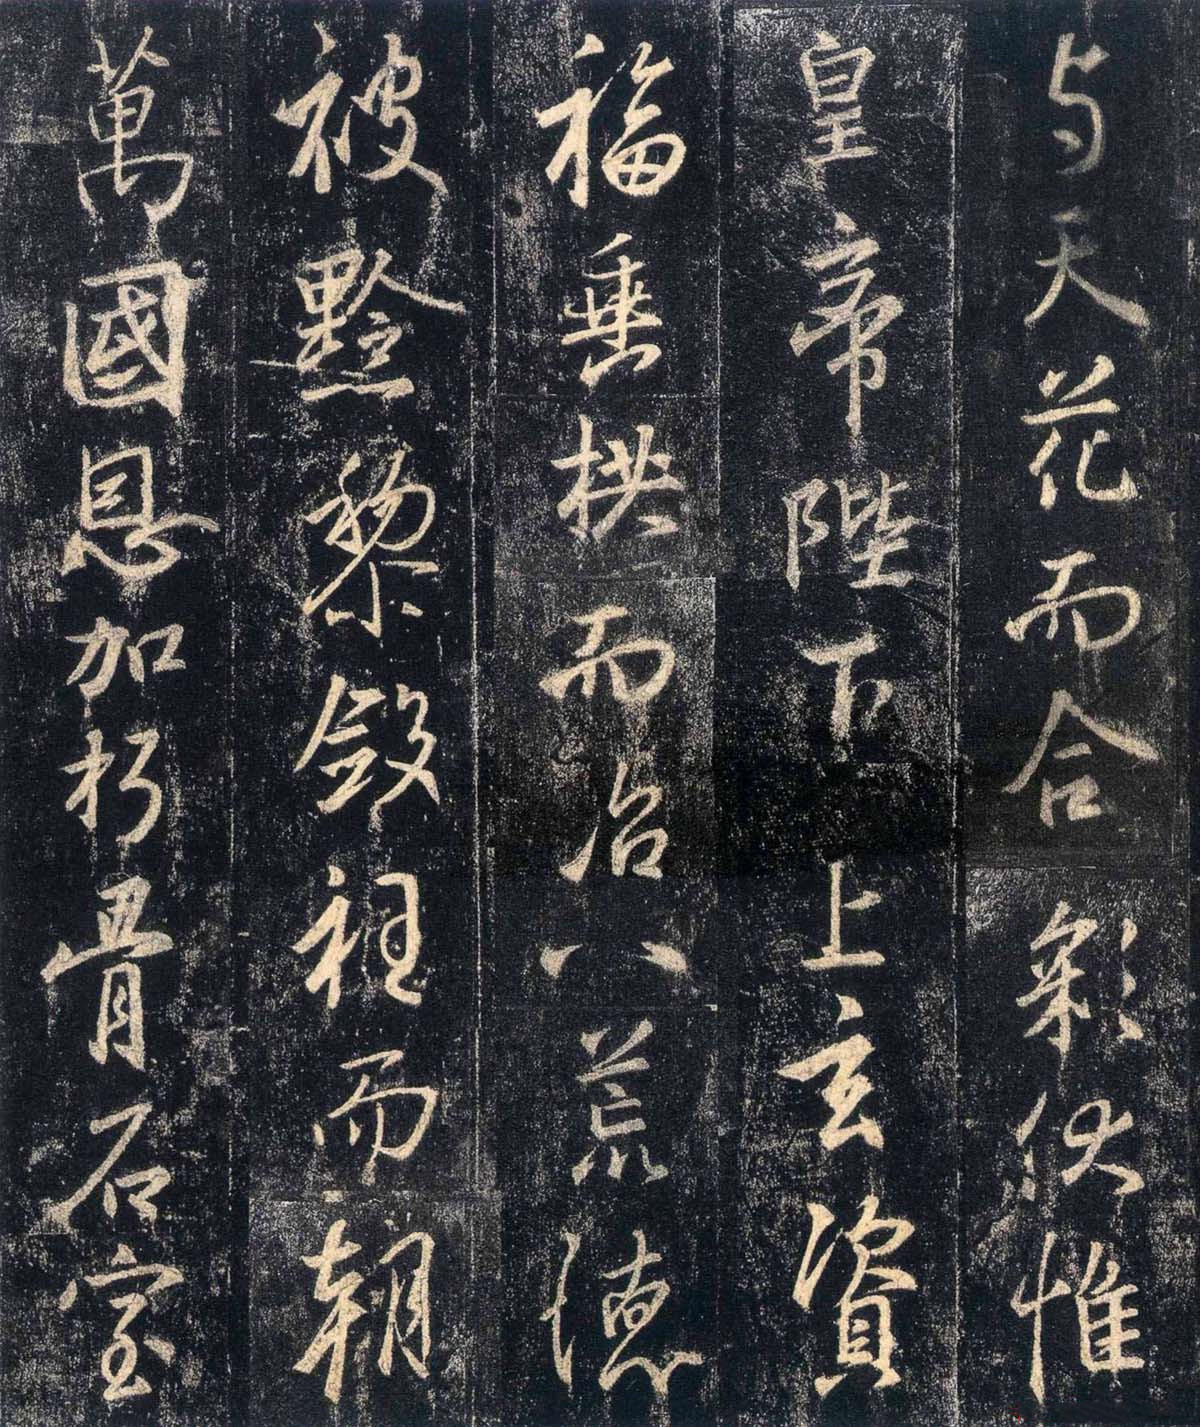 与天花而合彩伏惟
皇帝陛下上玄資
福垂拱而治八荒德
被黔黎斂衽而朝
萬國恩加朽骨石室